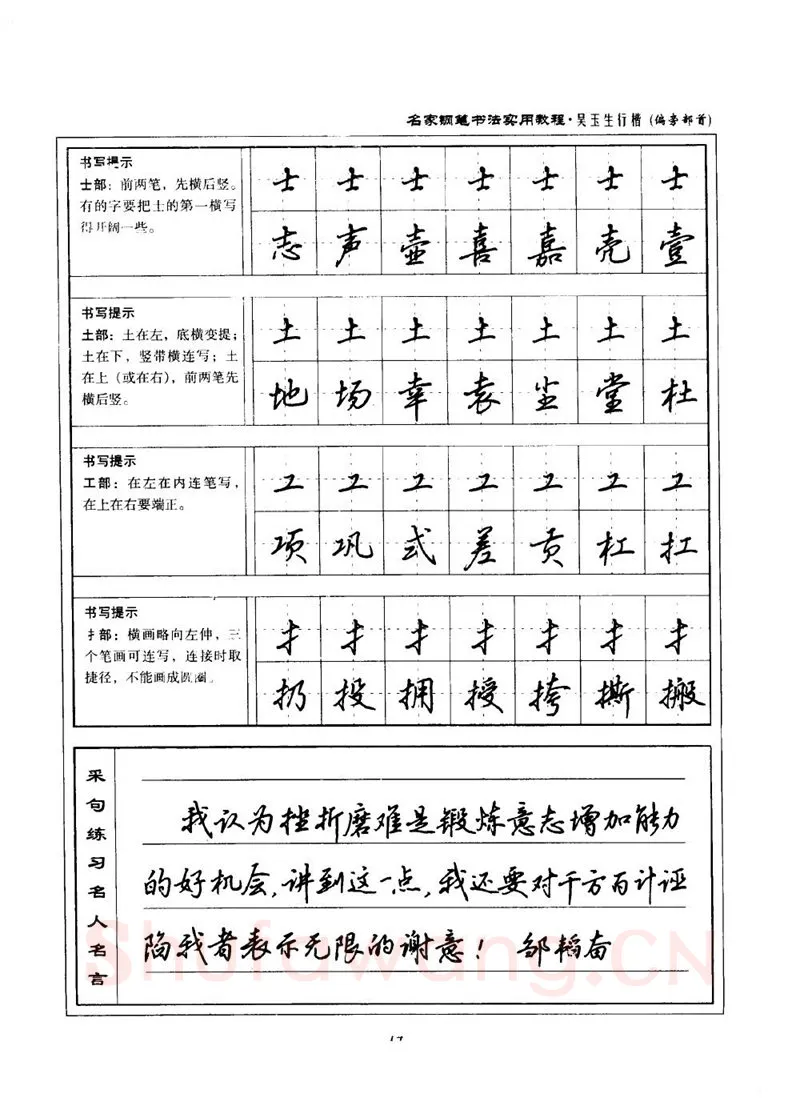 名家钢笔书法实用教程·吴玉生行楷(偏旁部首)
书写提示
士部：前两笔，先横后竖。
有的字要把士的第一横写
得开阔一些。
士 士 士 士 士 士 士
志 声 壶 喜 嘉 壳 壹
书写提示
土部：土在左，底横变提；
土在下，竖带横连写；土
在上（或在右），前两笔先
横后竖。
土 土 土 土 土 土 土
地 场 幸 袁 尘 堂 杜
书写提示
工部：在左在内连笔写，
在上在右要端正。
工 工 工 工 工 工 工
项 巩 式 差 贡 杠 扛
书写提示
扌部：横画略向左伸，三
个笔画可连写，连接时取
捷径，不能画成圆圈。
扌 扌 扌 扌 扌 扌 扌
扔 投 拥 授 挎 撕 搬
采句练习名人名言
我认为挫折磨难是锻炼意志增加能力
的好机会，讲到这一点，我还要对千方百计诬
陷我者表示无限的谢意！ 邹韬奋
Shufawang.CN